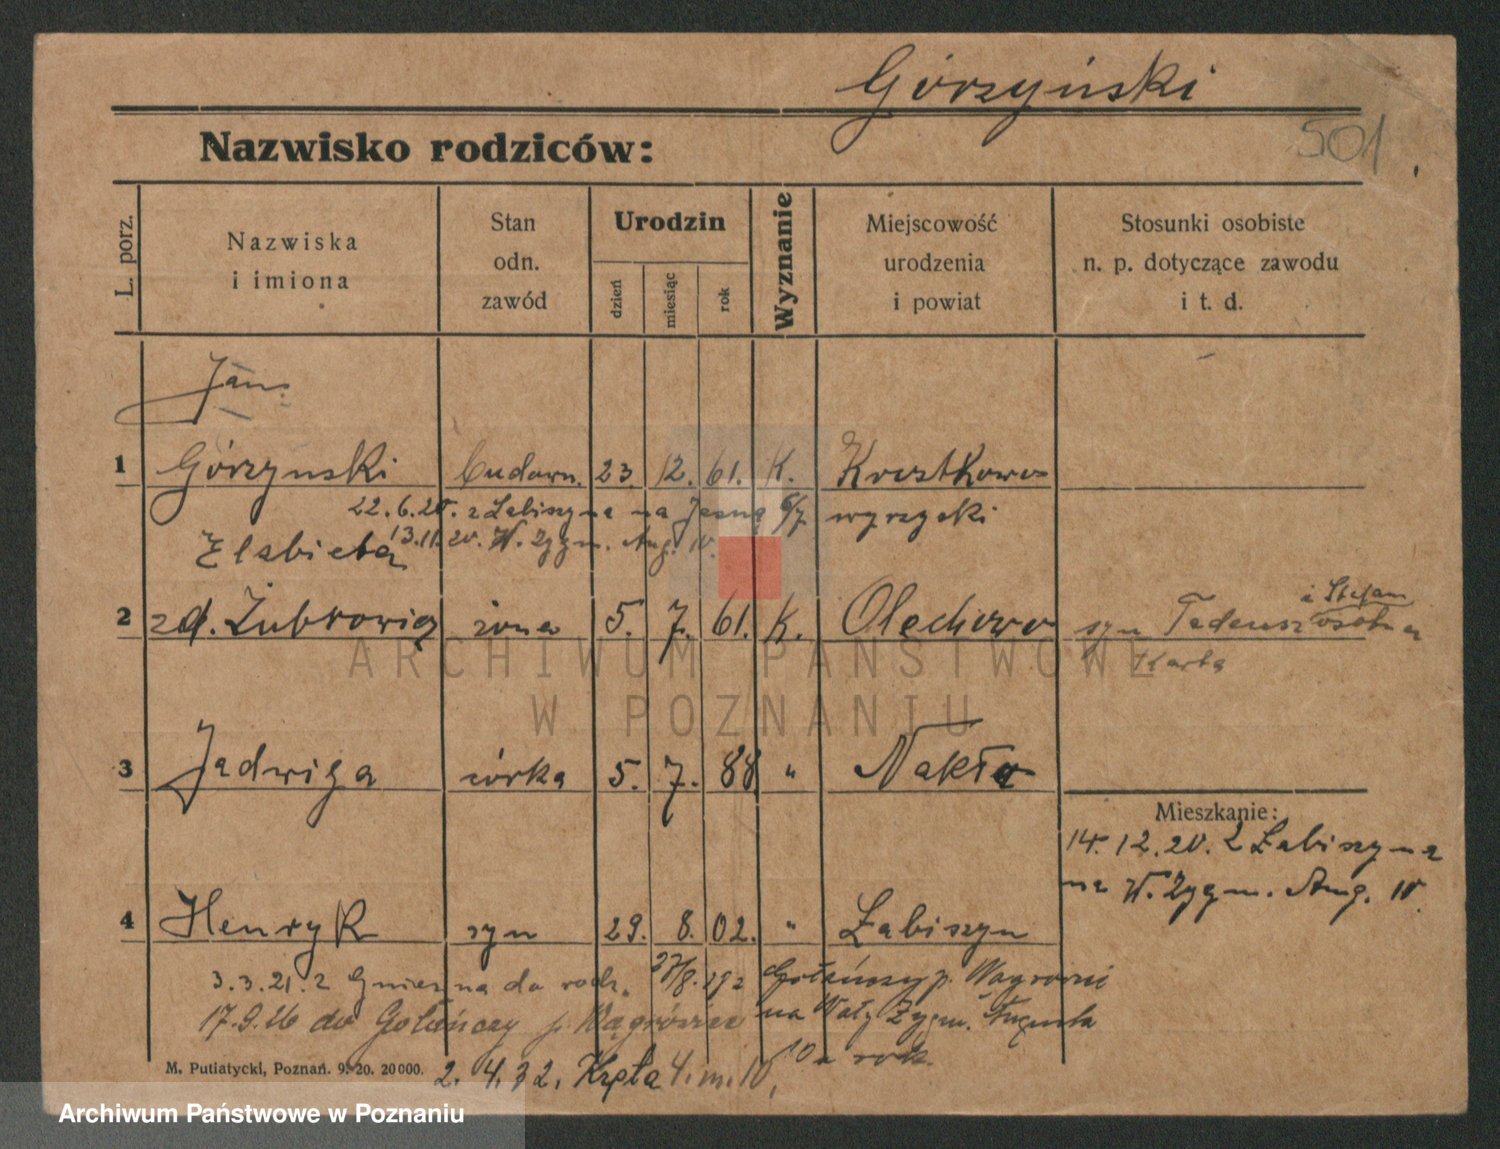 Górzyński
501
Nazwisko rodziców:
L. porz.
Nazwiska
i imiona
Stan
odn.
zawód
Urodzin
dzień
miesiąc
rok
Wyznanie
Miejscowość
urodzenia
i powiat
Stosunki osobiste
n. p. dotyczące zawodu
i t. d.
Jan
1 Górzynski Budown. 23. 12. 61. K.
22.6.20. z Łabiszyna na Jasną 6/7 wyrzyski
Elsbieta 13.11.20. W. Zygm. Aug. 10.
2 zd. Żubrowią żona 5. 7. 61. K. Olechowo syn Tadeusz i Stefan osobna
Karta
3 Jadwiga córka 5. 7. 88 " Nakło
Mieszkanie:
14.12.20. z Łabiszyna
na W. Zygm. Aug. 10.
4 Henryk syn 29. 8. 02. " Łabiszyn
3.3.21. z Gniezna do rodz. 27/8. 29 z Gołańczy p. Wągrowic
17.9.26 do Gołańczy p. Wągrówiec na Wały Zygm. Augusta
10 a rok.
M. Putiatycki, Poznań. 9.-20. 20 000.
2. 4. 32. Kręta 4. m. 10,
ARCHIWUM PAŃSTWOWE
W POZNANIU
Archiwum Państwowe w Poznaniu